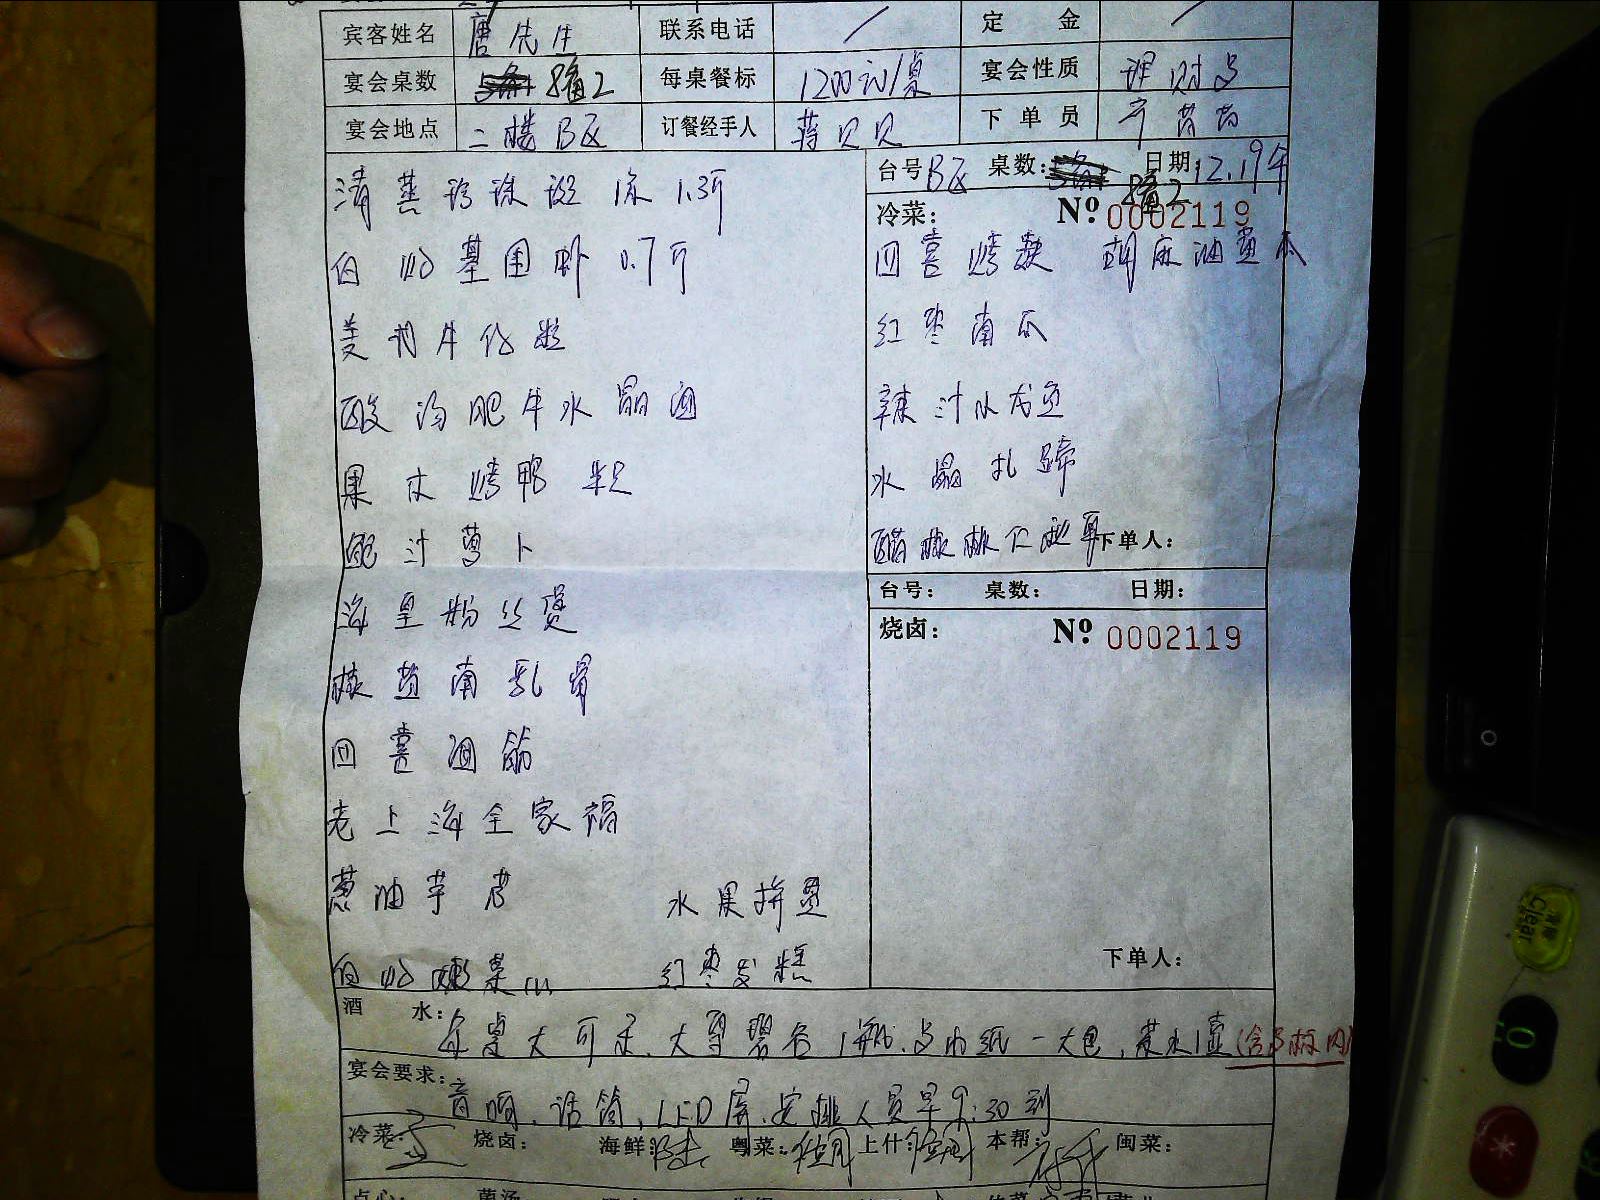 宾客姓名 唐先生 联系电话 / 定 金 /
宴会桌数 8备2 每桌餐标 1200元/桌 宴会性质
宴会地点 二楼B区 订餐经手人 蒋贝贝 下单员
台号:B区 桌数: 8备2 日期:12.19午
冷菜: Nº 0002119
清蒸珍珠斑 1条 1.3斤
白灼基围虾 0.7斤
美刺牛仔粒
酸汤肥牛水晶面
果木烤鸭 半只
鲍汁萝卜
海皇粉丝煲
椒盐南乳骨
四喜面筋
老上海全家福
葱油芋艿
白灼嫩菜心
水果拼盘
红枣发糕
四喜烤麸 胡麻油黄瓜
红枣南瓜
辣汁小龙鱼
水晶扎蹄
醋椒桃仁秋耳
下单人:
台号: 桌数: 日期:
烧卤: Nº 0002119
下单人:
酒 水: 每桌大可乐、大雪碧各1瓶、方巾纸一大包,茶水1壶(含3标内)
宴会要求: 音响、话筒、LED屏、安排人员早9:30到
冷菜: 烧卤: 海鲜: 粤菜: 上什: 本帮: 闽菜:
点心: